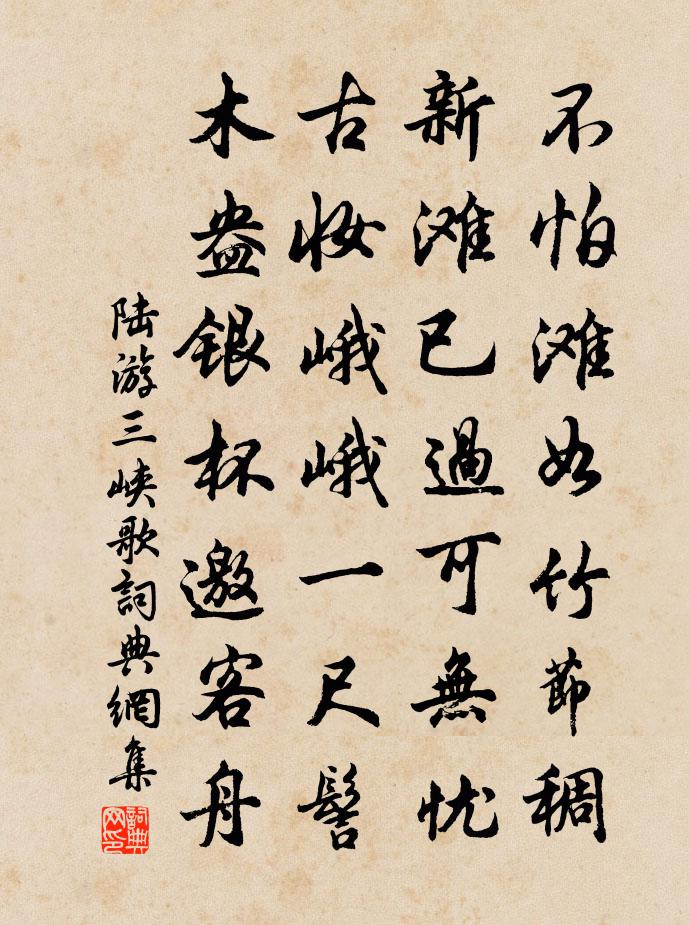 不怕滩如竹節稠
新滩已過可無忧
古妆峨峨一尺髻
木盎銀杯邀客舟
陆游三峡歌詞典網集
詞典网印